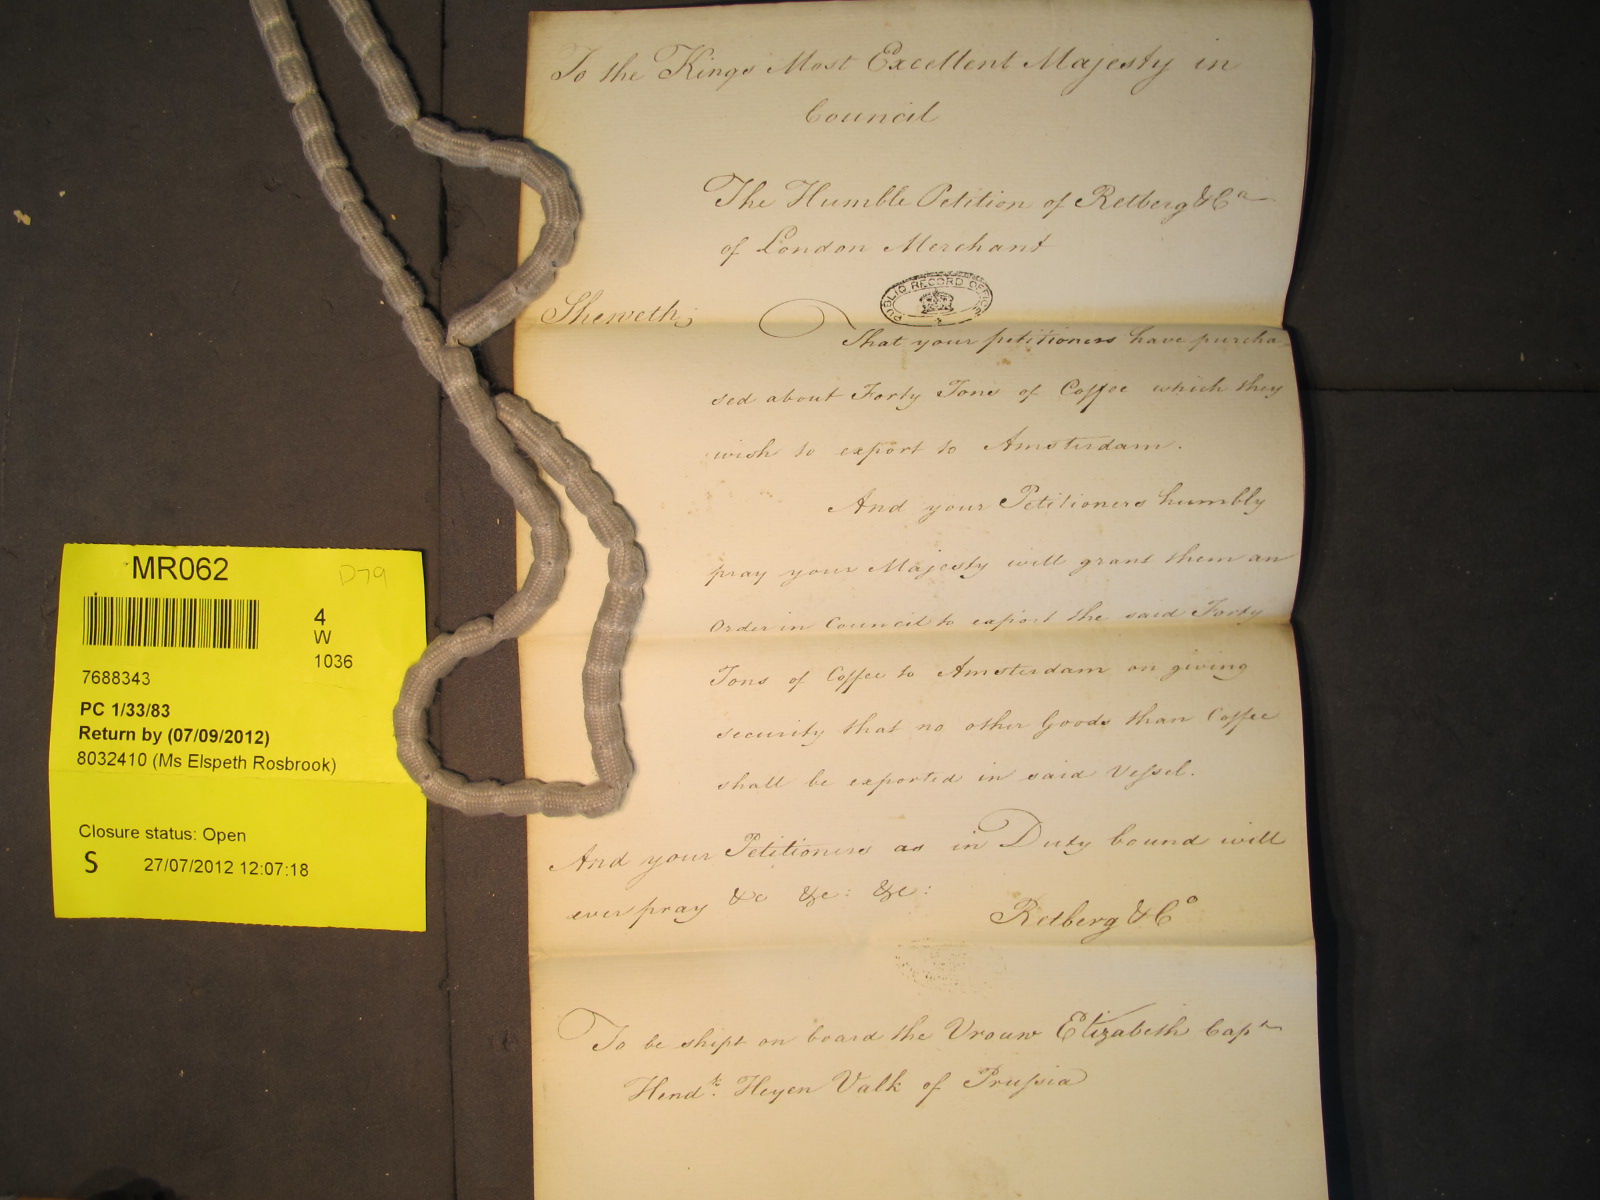 To the Kings Most Excellent Majesty in
Council
The Humble Petition of Retberg & Co
of London Merchant
PUBLIC RECORD OFFICE
Sheweth;
That your petitioners have purcha
sed about Forty Tons of Coffee which they
wish to export to Amsterdam.
And your Petitioners humbly
pray your Majesty will grant them an
Order in Council to export the said Forty
Tons of Coffee to Amsterdam on giving
security that no other Goods than Coffee
shall be exported in said Vessel.
And your Petitioners as in Duty bound will
ever pray &c &c: &c:
Retberg & Co
To be shipt on board the Vrouw Elizabeth Capn
Hendk: Heyen Valk of Prussia
MR062
D79
4
W
1036
7688343
PC 1/33/83
Return by (07/09/2012)
8032410 (Ms Elspeth Rosbrook)
Closure status: Open
S 27/07/2012 12:07:18